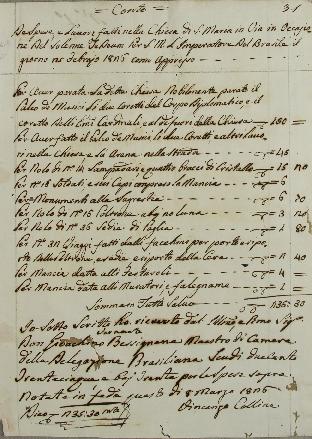 Conto 31
De Spese, e Lavori fatti nella Chiesa di S. Maria in Via in Occasio
ne del Solenne Te Deum per S. M. l'Imperatore del Brasile il
giorno Febrajo 1826 come Appresso
Per Aver parata la ditta Chiesa Nobilmente parato il
Palco di Musici li due Coretti del Corpo Diplomatico, e il
Coretto delli Emi Cardinali, e al di fuori della Chiesa 150 =
Per Aver fatto il Palco de Musici li due Coretti e altri lavo
ri nella Chiesa e la Arena nella Strada 45
Per Nolo di No 14 Lampadari e quattro Bracci di Cristallo 15
Per No 12 Soldati e suo Capo compreso la Mancia 6
Per Monumenti alla Sagrestia 6
Per Nolo di No 16 Poltrone a bg no luna 3 20
Per Nolo di No 35 Sedie di Paglia 1 80
Per No Viaggi fatti dalli facchini per porto e ripor
to delle Poltrone, e sedie e riporto della Cera 40
Per Mancia data alli Festaroli 4 =
Per Mancia data alli Muratori e falegname 2 =
Somma in Tutto Scudi 235:30
Io Sotto Scritto ho ricevuto dal Illmo e Rmo Sigr
Don Gioachino Bessignani Maestro di Camera
della Delegazione Brasiliana Scudi duecento
Trentacinque e bj trenta per le Spese sopra
Notate in fede questo dì 8 Marzo 1826
Dico 235:30 mta
Vincenzo Collini